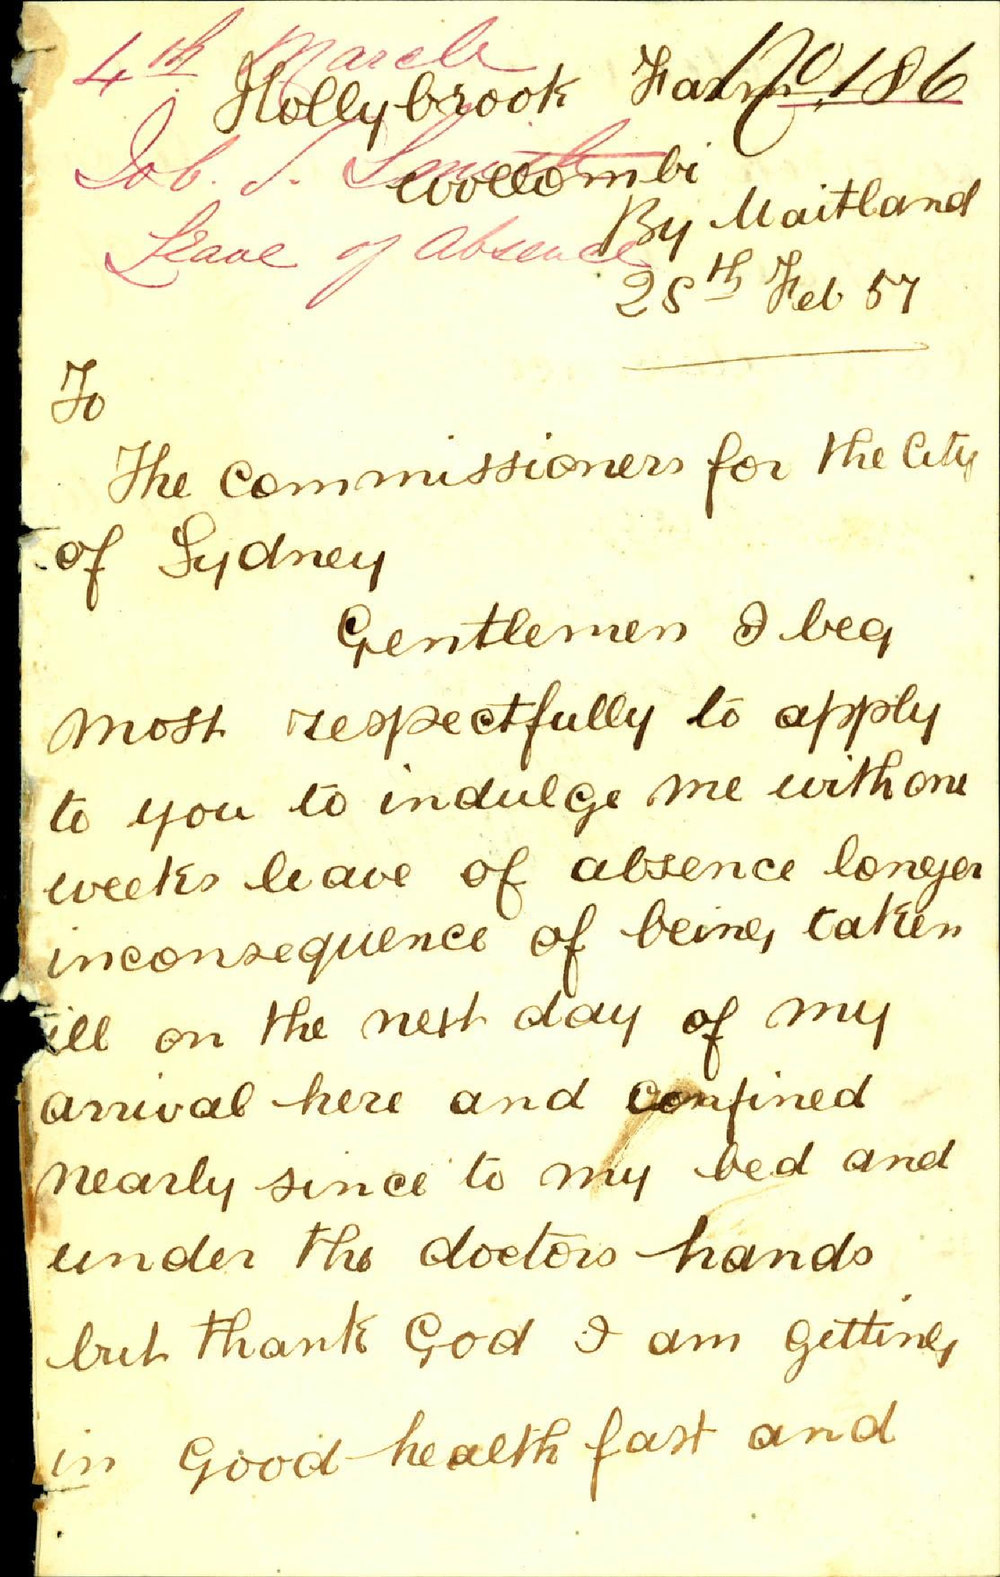 4th March
No 186
Hollybrook Farm
Job. S. Smith
Wollombi
By Maitland
Leave of Absence
28th Feb 57
To
The Commissioners for the City
of Sydney
Gentlemen I beg
most respectfully to apply
to you to indulge me with one
weeks leave of absence longer
inconsequence of being taken
ill on the next day of my
arrival here and confined
nearly since to my bed and
under the doctors hands
but thank God I am getting
in Good health fast and